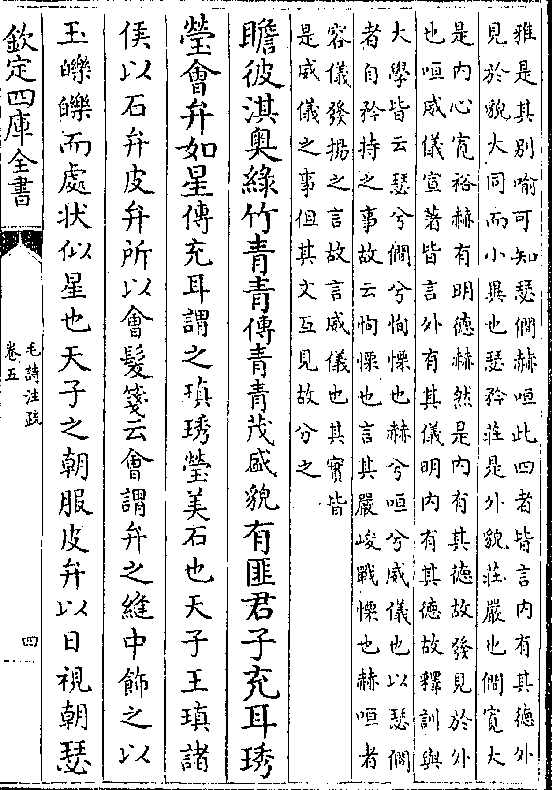 雅是其别喻可知瑟僩赫咺此四者皆言内有其德外
見於貌大同而小異也瑟矜莊是外貌莊嚴也僩寛大
是内心寛裕赫有明德赫然是内有其德故發見於外
也咺威儀宣著皆言外有其儀明内有其德故釋訓與
大學皆云瑟兮僩兮恂慄也赫兮咺兮威儀也以瑟僩
者自矜持之事故云恂慄也言其嚴峻戰慄也赫咺者
容儀發揚之言故言威儀也其實皆
是威儀之事但其文互見故分之
瞻彼淇奥緑竹青青傳青青茂盛貌有匪君子充耳琇
瑩會弁如星傳充耳謂之瑱琇瑩美石也天子玉瑱諸
侯以石弁皮弁所以會髮箋云會謂弁之縫中飾之以
玉皪皪而處狀似星也天子之朝服皮弁以日視朝瑟
欽定四庫全書
毛詩注疏
卷五
四